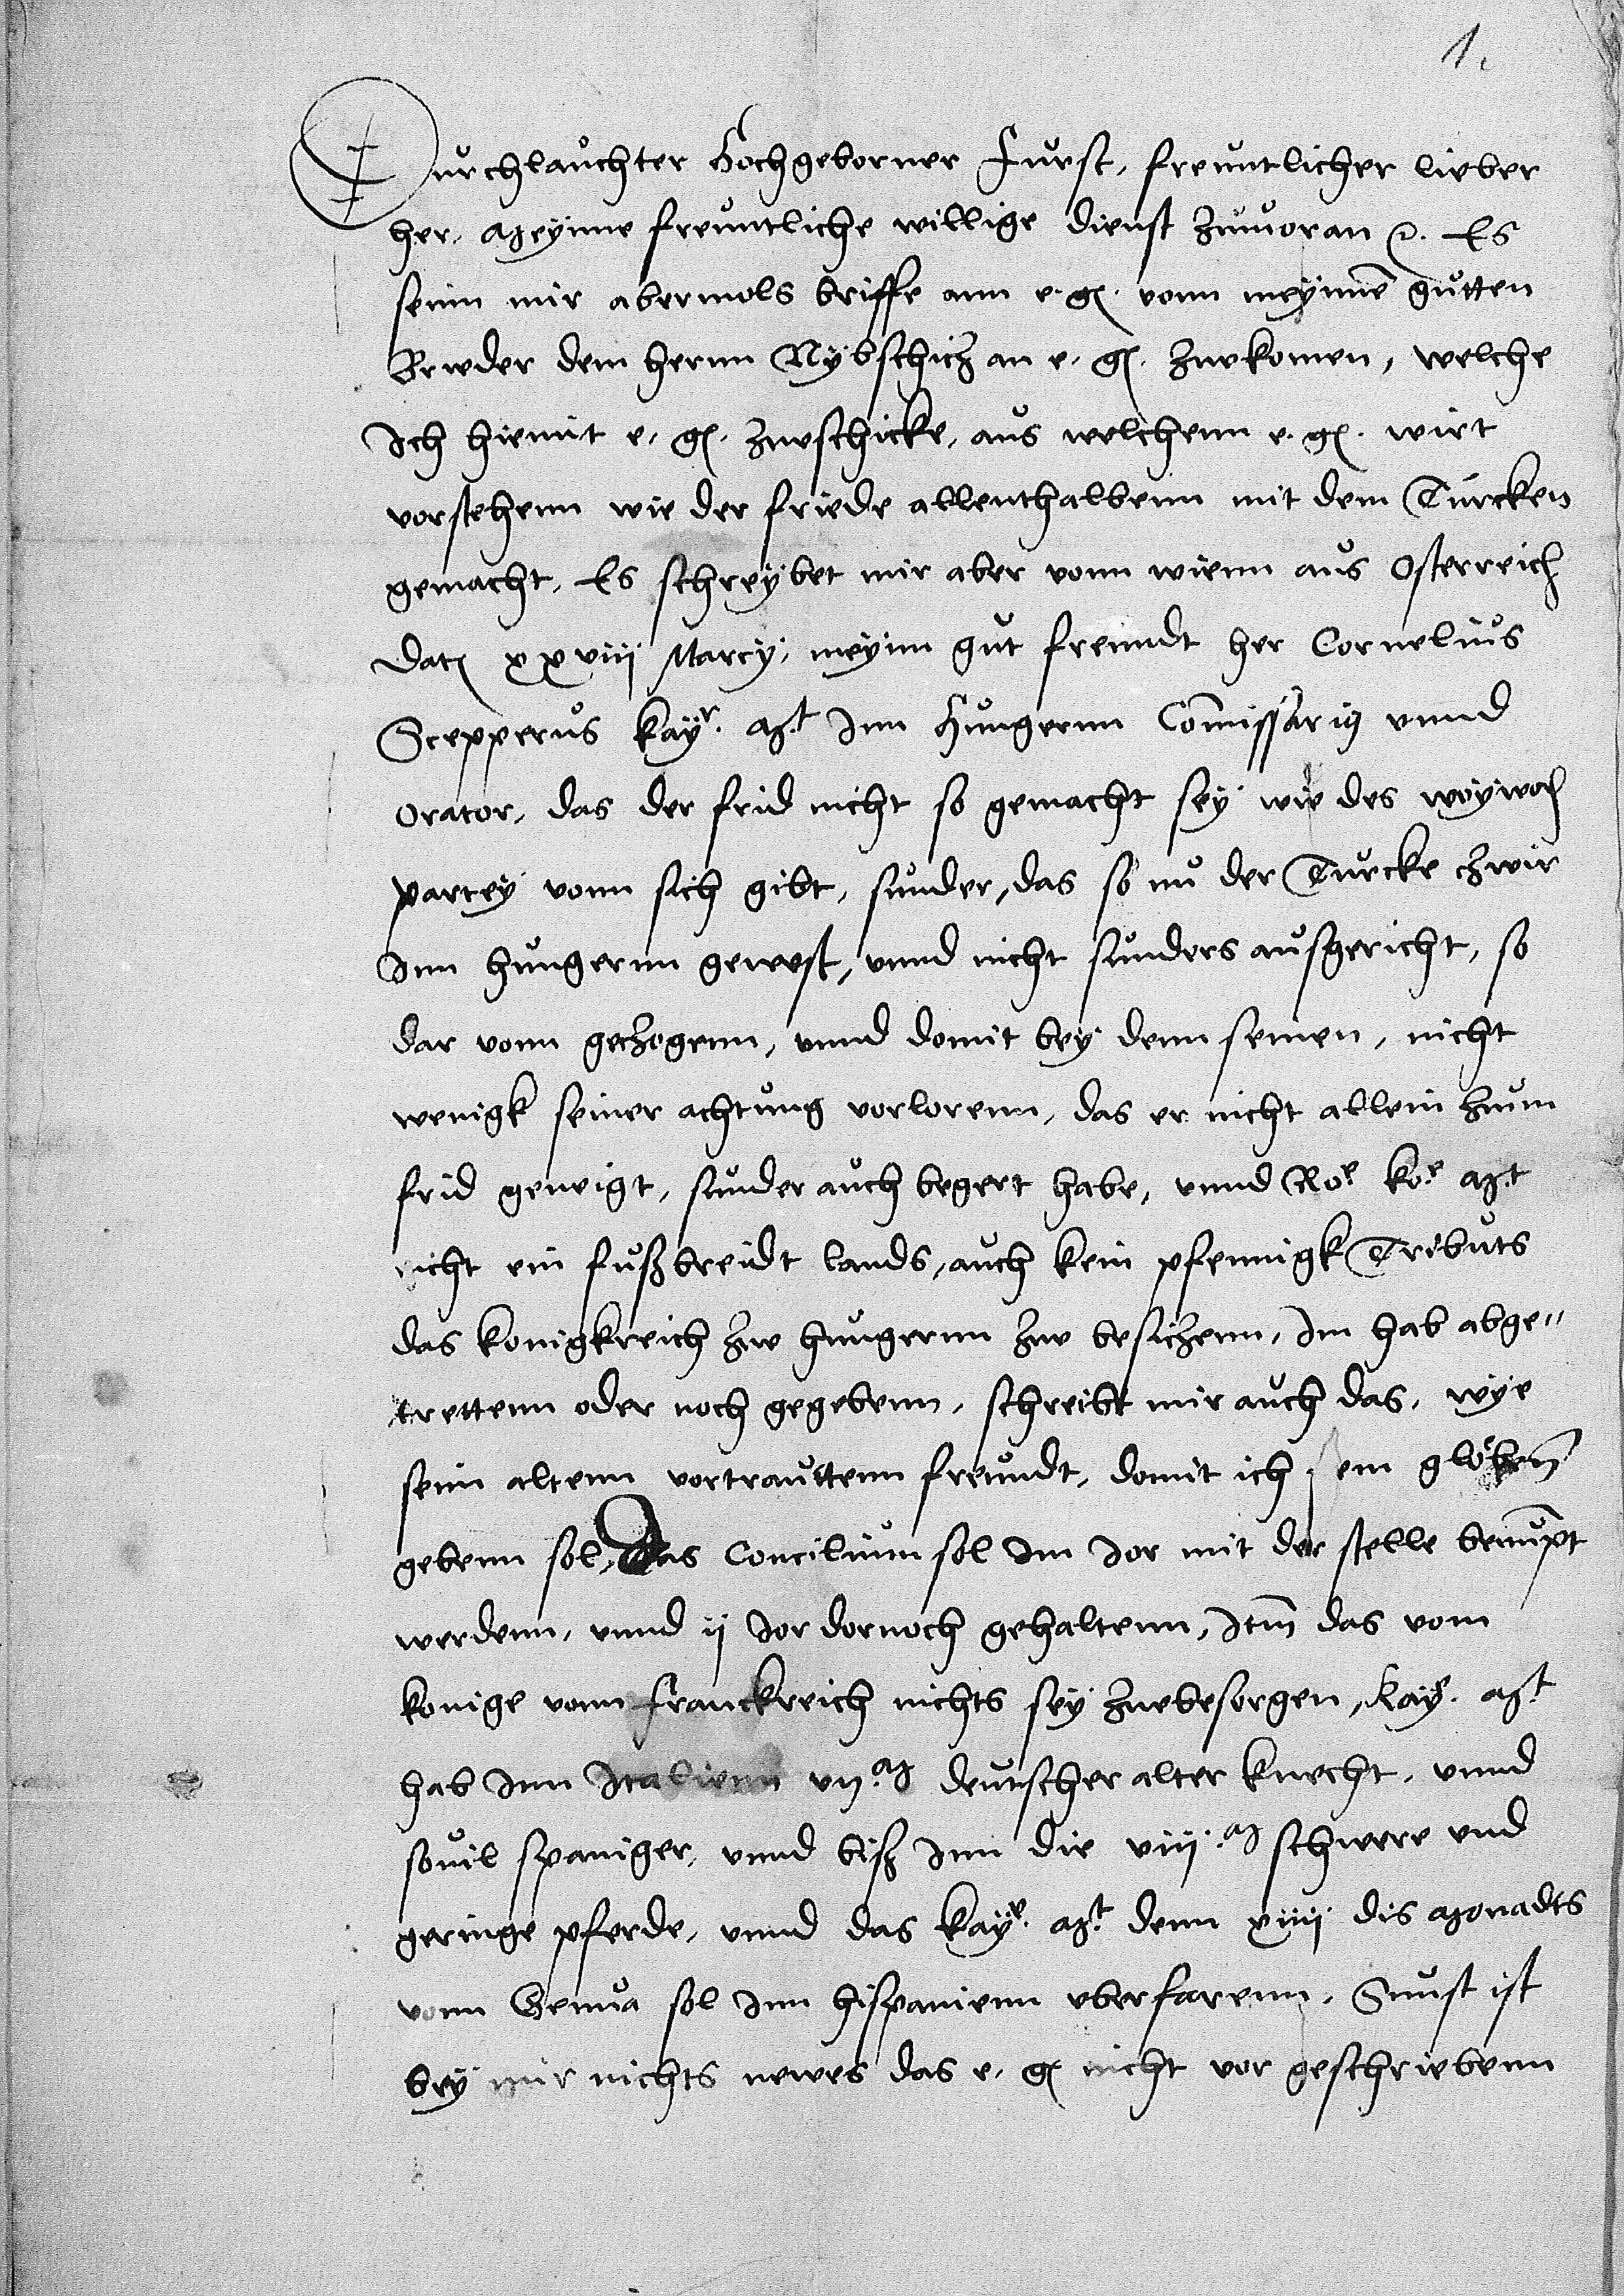 1.
Durchlauchter Hochgeborner Furst, freuntlicher lieber
her, Meynne freuntliche willige dienst zuuoran etc. Es
seinn mir abermols briffe ann e. g. vonn meynne gutten
Bruder dem hernn Nybschicz an e. g. zwkomen, welche
Ich hiemit e. g. zwschicke, aus welchenn e. g. wirt
vorstehenn wie der friede allenthalbenn mit dem Turcken
gemacht, Es schreybet mir aber vonn wienn aus Osterreich
dat xxviij Marcy, meynn gut freundt her Cornelius
Scepperus kay. Mt Inn Hungernn Comissarig vnnd
Orator, das der frid nicht so gemacht sey wie des woywod
partey vonn sich gibt, sunder, das so nu der Turcke czwir
Inn hungernn gewest, vnnd nicht sunders ausgericht, so
dar vonn geczogenn, vnnd domit bey denn seinen, nicht
wenigk seiner achtung vorlorenn, das er nicht allein zum
frid geneigt, sunder auch begert habe, vnnd Ro. ko. Mt
nicht ein fußbreidt lands, auch kein pfennigk Tributs
das konigkreich zw hungernn zw besiczenn, Im hab abge"
trettenn oder noch gegebenn, schreibt mir auch das, wye
seim altenn vortrauttenn freundt, domit ich sem gloeben
gebenn sol, Das Concilium sol Im Jor mit der stelle benumpt
werdenn, vnnd ij Jor dornoch gehaltenn, Itm das vom
konige vonn franckreich nichts sey zwbesorgen, Kay. Mt
hab Inn Italienn vij M deutscher alter knecht, vnnd
souil spaniger, vnnd biß Inn die viij M schwere vnd
geringe pferde, vnnd das kay. Mt denn xiiij dis Monadts
vonn Genua sol Inn hispanienn vberfarenn, Sunst ist
bey mir nichts newes das e. g nicht vor geschriebenn